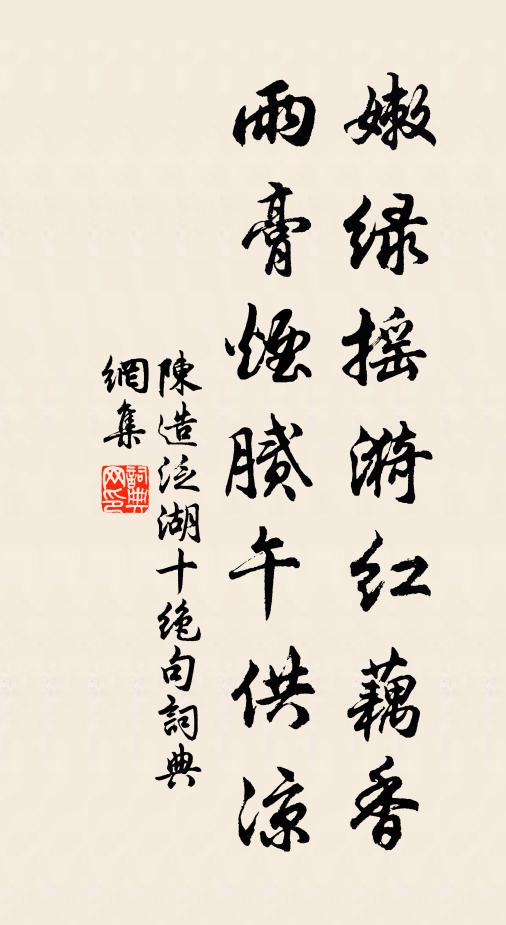 嫩绿摇漪红藕香
雨膏煙膩午供凉
陳造泛湖十绝句詞典
網集
詞典網印